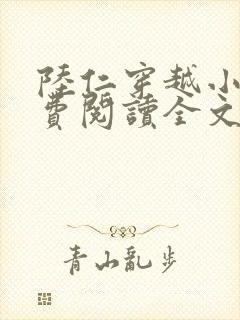 陸仁穿越小
費閱讀全文
青山亂步